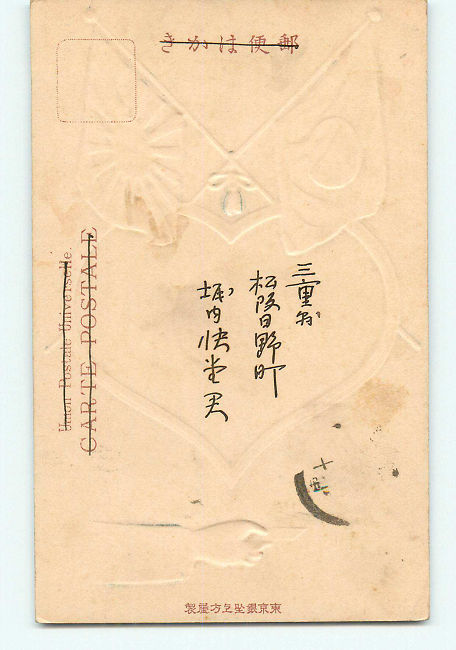 郵便はかき
Union Postale Universelle.
CARTE POSTALE
三重县
松阪日野町
堀内快堂君
東京銀座上方屋製